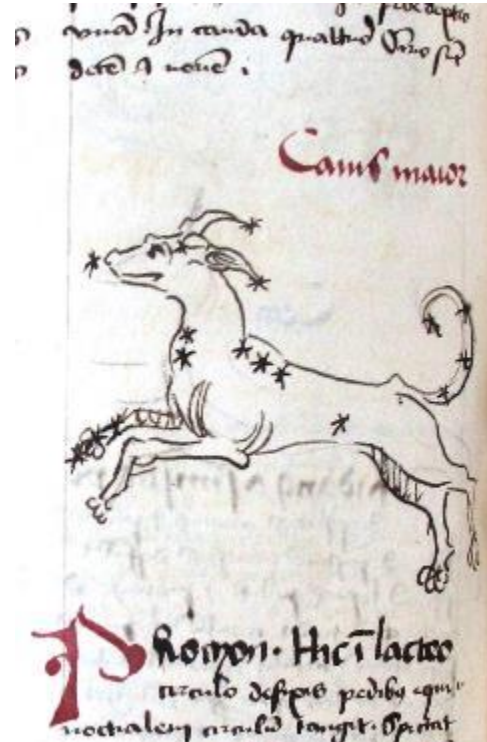 vnaʒ. In cauda quattuor
decē ⁊ nouē.
Canis maior
Prochion. Hic ī lacteo
circulo defixis pedibꝯ equi-
noctialem circulū tangit. Spectat